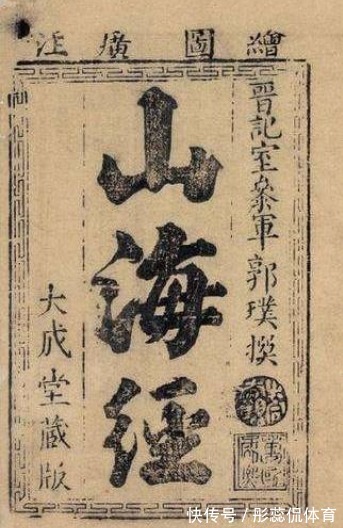 繪圖廣注
晉記室參軍郭璞撰
山海經
大成堂藏版
快传号/彤蕊侃体育